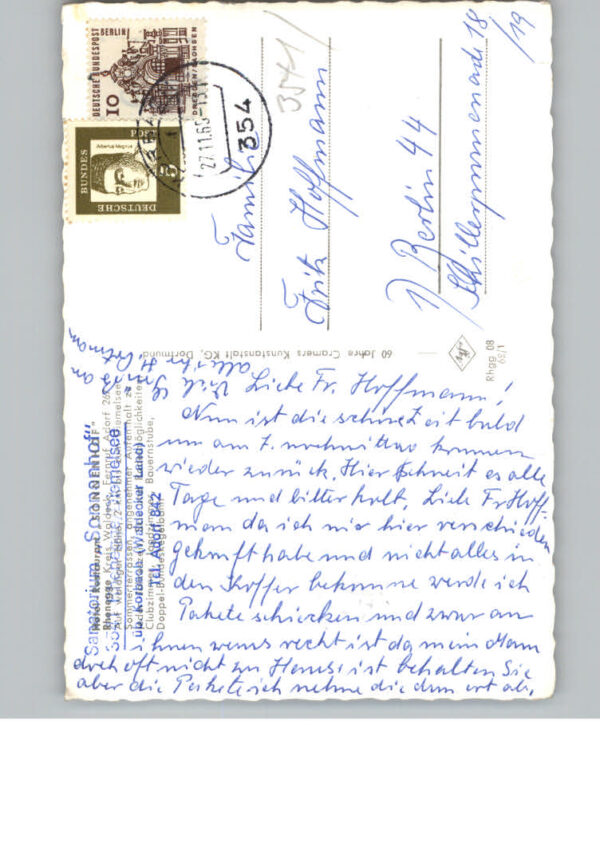 Liebe Fr. Hoffmann!
Nun ist die schöne Zeit bald
um am 7. nachmittag kommen
wieder zurück. Hier schneit es alle
Tage und bitter kalt. Liebe Fr Hoff-
man da ich mir hier verschieden
gekauft habe und nicht alles in
den Koffer bekomme werde ich
Pakete schicken und zwar an
ihnen wenns recht ist da mein Mann
doch oft nicht zu Hause ist behalten Sie
aber die Pakete ich nehme die dann ab.
Familie
Fritz Hoffmann
1 Berlin 44
Schillerpromenade 18
/19
3541/
DEUTSCHE BUNDESPOST
BERLIN
10
DRESDEN/SACHSEN
DEUTSCHE
BUNDES
POST
5
27.11.65-13
354
60 Jahre Cramers Kunstanstalt KG, Dortmund
Agfa
Rhgg 08
Sanatorium „Sonnenhof"
über Korbach (Waldecker Land)
Tel. Adorf 842
Hotel - Restaurant „SONNENHOF"
Rhenegge, Kreis Waldeck, Fernruf Adorf
Sommerterrassen, angenehmer Aufenthalt
Clubzimmer, Jagdzimmer, Bauernstube,
Doppel-Bundeskegelbahn